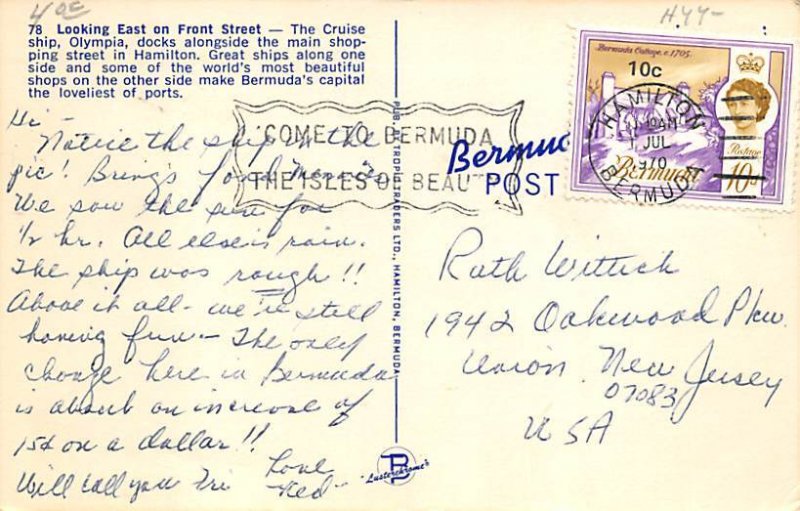 40¢
HYY-
78 Looking East on Front Street — The Cruise
ship, Olympia, docks alongside the main shop-
ping street in Hamilton. Great ships along one
side and some of the world's most beautiful
shops on the other side make Bermuda's capital
the loveliest of ports.
Hi -
Notice the ship in the
pic! Brings fond memories
We saw the sun for
1/2 hr. All else is rain.
The ship was rough!!
Above it all - we're still
having fun - The only
change here in Bermuda
is about an increase of
15¢ on a dollar!!
Will call you Fri
Love
-Ted-
COME TO BERMUDA
THE ISLES OF BEAUTY
PUB. BY TROPIC TRADERS LTD., HAMILTON, BERMUDA
Lusterchrome's
Bermuda
POST
Bermuda Cottage, c.1705.
10c
Postage
Bermuda
10d
HAMILTON
AM
1 JUL
1970
BERMUDA
Ruth Wittich
1942 Oakwood Pkw.
Union, New Jersey
07083
USA